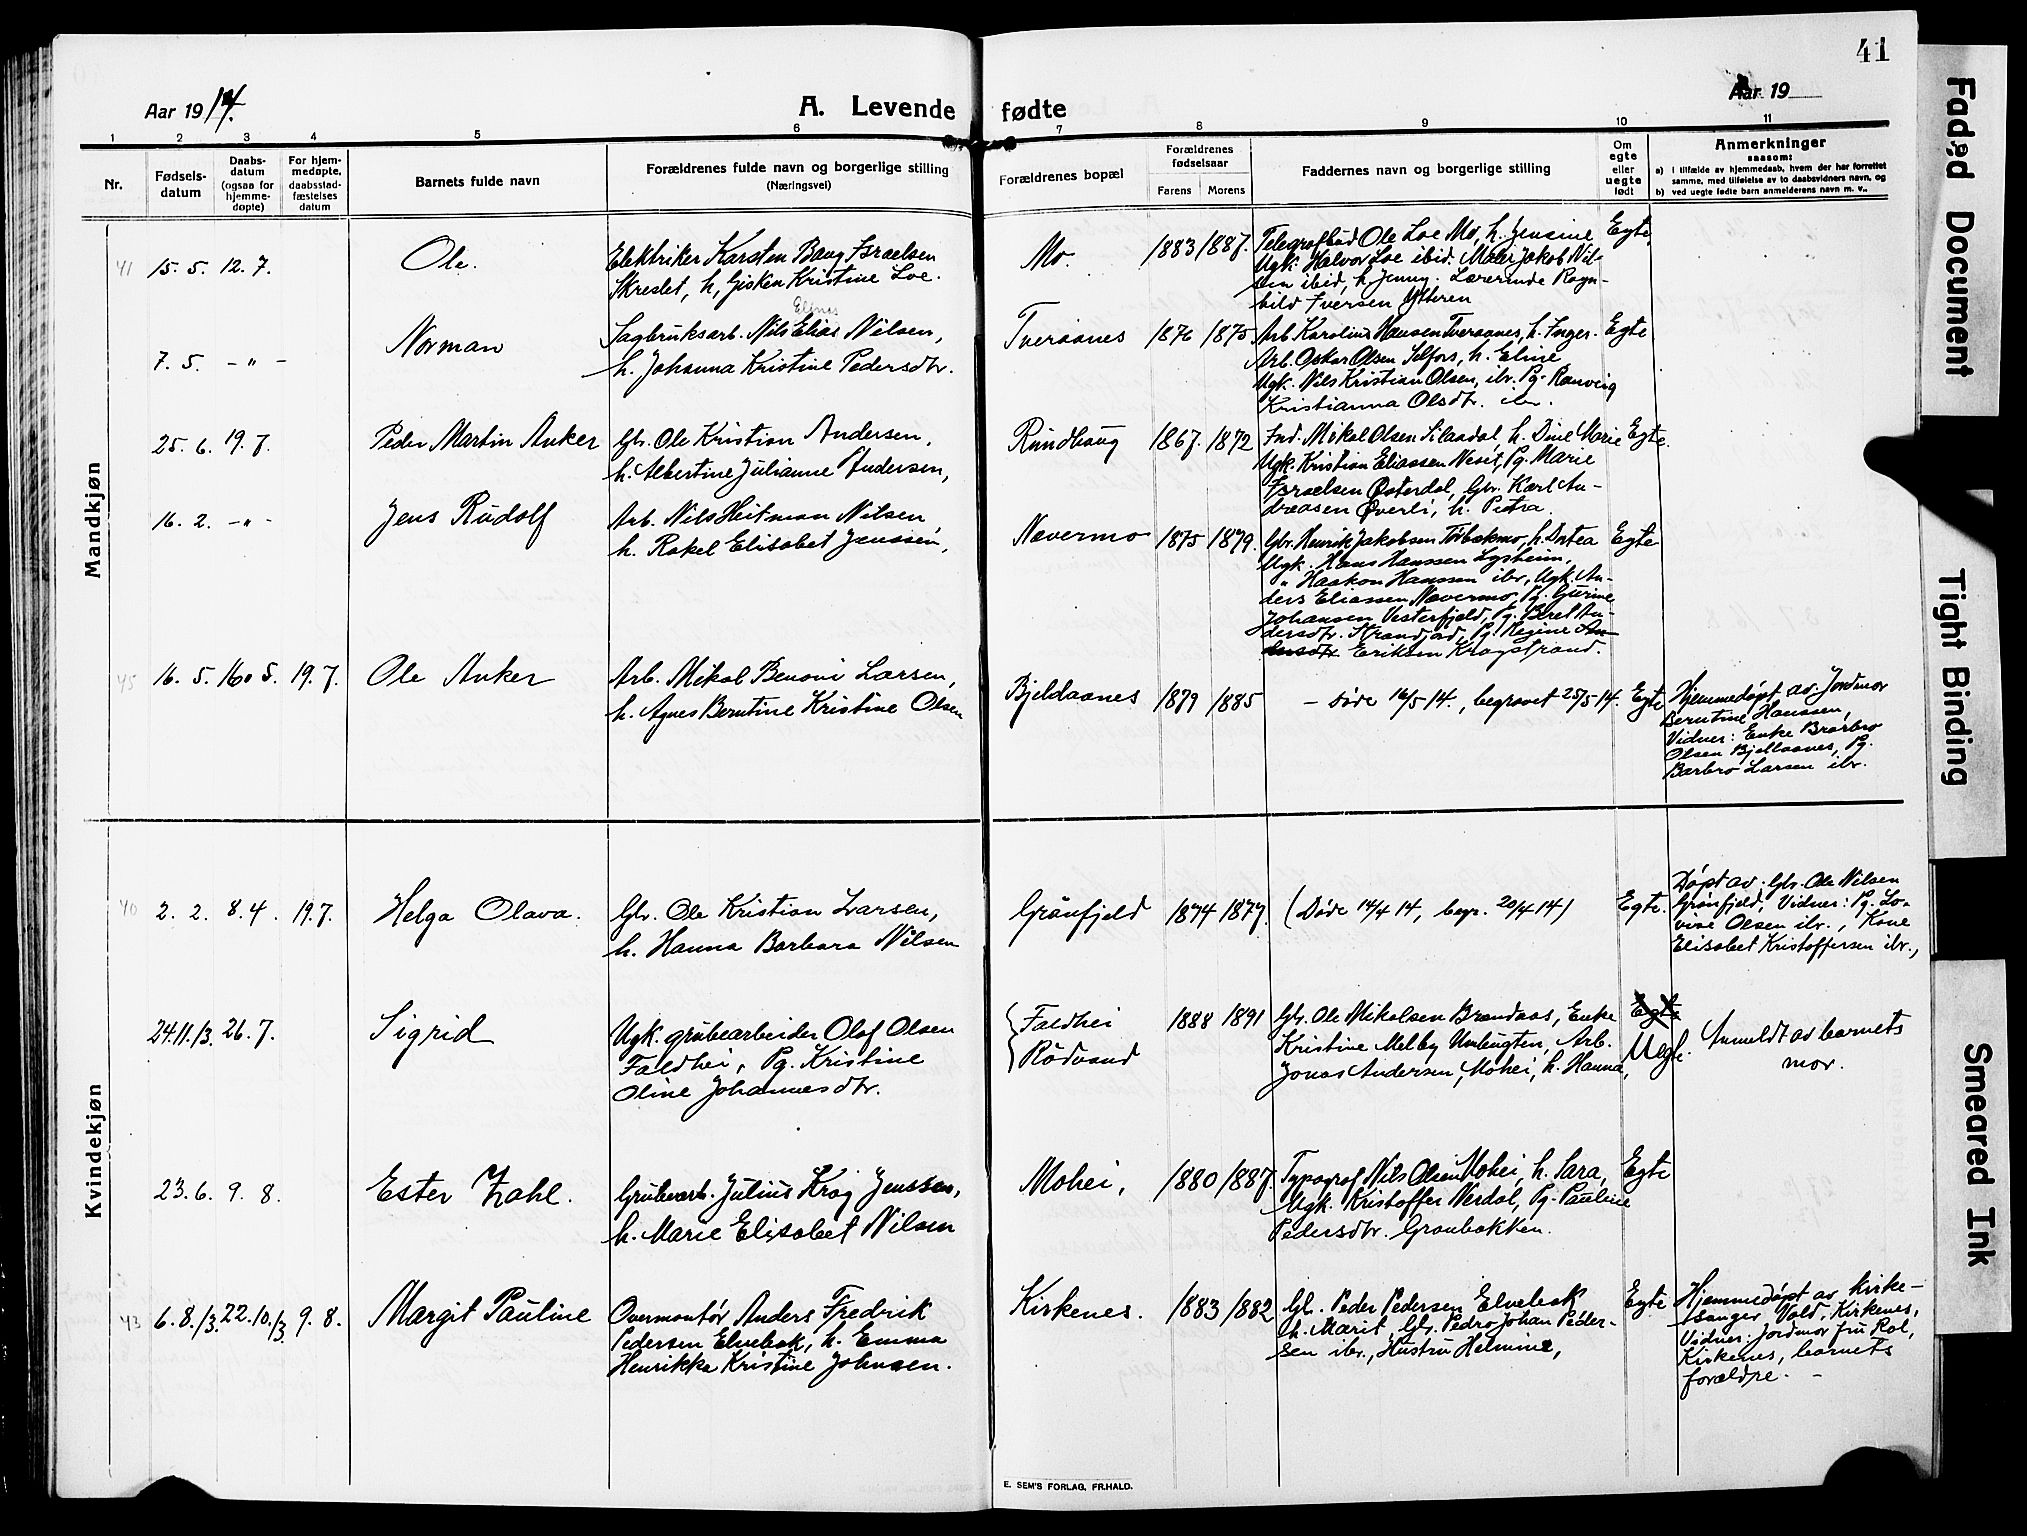 41
Aar 1914.
A. Levende fødte
Aar 19
1 2 3 4 5 6 7 8 9 10 11
Nr.
Fødsels-
datum
Daabs-
datum
(ogsaa for
hjemme-
døpte)
For hjem-
medøpte,
daabsstad-
fæstelses
datum
Barnets fulde navn
Forældrenes fulde navn og borgerlige stilling
(Næringsvei)
Forældrenes bopæl
Forældrenes
fødselsaar
Farens Morens
Faddernes navn og borgerlige stilling
Om
egte
eller
uegte
født
Anmerkninger
saasom:
a) i tilfælde av hjemmedaab, hvem der har forrettet
samme, med tilføielse av to daabsvidners navn, og
b) ved uegte fødte barn anmelderens navn m. v..
Mandkjøn
41 15. 5. 12. 7.
Ole.
Elektriker Karsten Bang Israelsen
Skreslet, h, Gisken Kristine Loe.
Mo.
1883 1887.
Telegrafbud Ole Loe Mo, h. Jensine
Ugk. Halvor Loe ibid. Maler Jakob Nil-
sen ibid, h. Jenny. Lærerinde Ragn-
hild Iversen Ytteren
Egte,
7. 5. - " -
Norman
Sagbruksarb. Nils Elias Nilsen,
h. Johanna Kristine Pedersdtr.
Tveraanes
1876 1875
Arb Karolius Hansen Tveraanes, h. Inger.
Arb. Oskar Olsen Selfors, h. Eline
Ugk. Nils Kristian Olsen, ibr. Pg. Ranveig
Kristianna Olsdtr. ibr.
Egte
25. 6. 19. 7.
Peder Martin Anker
Gbr. Ole Kristian Andersen,
h. Albertine Julianne Andersen,
Rundhaug
1867. 1872
Ind. Mikal Olsen Silaadal, h. Dine Marie
Ugk. Kristian Eliassen Neset, Pg. Marie
Israelsen Østerdal, Gbr. Karl An-
dreasen Øverli, h. Petra.
Egte.
16. 2. - " -
Jens Rudolf
Arb. Nils Heitman Nilsen,
h. Rakel Elisabet Jenssen,
Nævermo
1875 1879.
Gbr. Henrik Jakobsen Torbakmo, h. Dotea
Ugk. Hans Hanssen Lysheim,
" Haakon Hanssen ibr, Ugk. An-
ders Eliassen Nævermo, Pg. Gurine
Johansen Vesterfjeld, Pg. Beret An-
dersdtr. Strandjad, Pg. Regine An-
dersdtr Eriksen Kragstrand.
Egte
45 16. 5. 16. 5. 19. 7.
Ole Anker
Arb. Mikal Benoni Larsen,
h. Agnes Berntine Kristine Olsen
Bjeldaanes
1879 1885
- døde 16/5 14., begravet 25/5 14.
Egte
Hjemmedøpt av Jordmor
Berntine Hanssen,
Vidner: Enke Brarbro
Olsen Bjellaanes, Pg.
Barbro Larsen ibr.
Kvindekjøn
40 2. 2. 8. 4. 19. 7.
Helga Olava.
Gbr. Ole Kristian Larsen,
h. Hanna Barbara Nilsen
Grønfjeld
1874 1877.
(Døde 14/4 14, begr. 20/4 14)
Egte.
Døpt av: Gbr. Ole Nilsen
Grønfjeld, Vidner: Pg. Lo-
vise Olsen ibr., Kone
Elisabet Kristoffersen ibr.,
24.11./3. 26. 7.
Sigrid
Ugk. grubearbeider Olaf Olsen
Faldhei, Pg. Kristine
Oline Johannesdtr.
Faldhei
Rødvand
1888 1891
Gbr. Ole Mikalsen Brendaas, Enke
Kristine Melby Umbugten, Arb.
Jonas Andersen, Mohei, h. Hanna,
Egte
Uegte.
Anmeldt av barnets
mor.
23. 6. 9. 8.
Ester Zahl.
Grubearb. Julius Krog Jenssen,
h. Marie Elisabet Nilsen
Mohei,
1880 1887.
Typograf Nils Olsen Mohei, h. Sara,
Ugk. Kristoffer Nerdal, Pg. Pauline
Pedersdtr. Graubakken.
Egte
43 6. 8./3. 22. 10./3 9. 8.
Margit Pauline
Overmontør Anders Fredrik
Pedersen Elvebak, h. Emma
Henrikke Kristine Johnsen.
Kirkenes.
1883 1882
Gbr. Peder Pedersen Elvebak
h. Marit, Gbr. Pedro Johan Peder-
sen ibr., Hustru Helmine,
Egte
Hjemmedøpt av Kirke-
sanger Vold, Kirkenes,
Vidner: Jordmor fru Rol,
Kirkenes, barnets
forældre. -
E. SEM'S FORLAG, FR.HALD.
Faded Document
Tight Binding
Smeared Ink